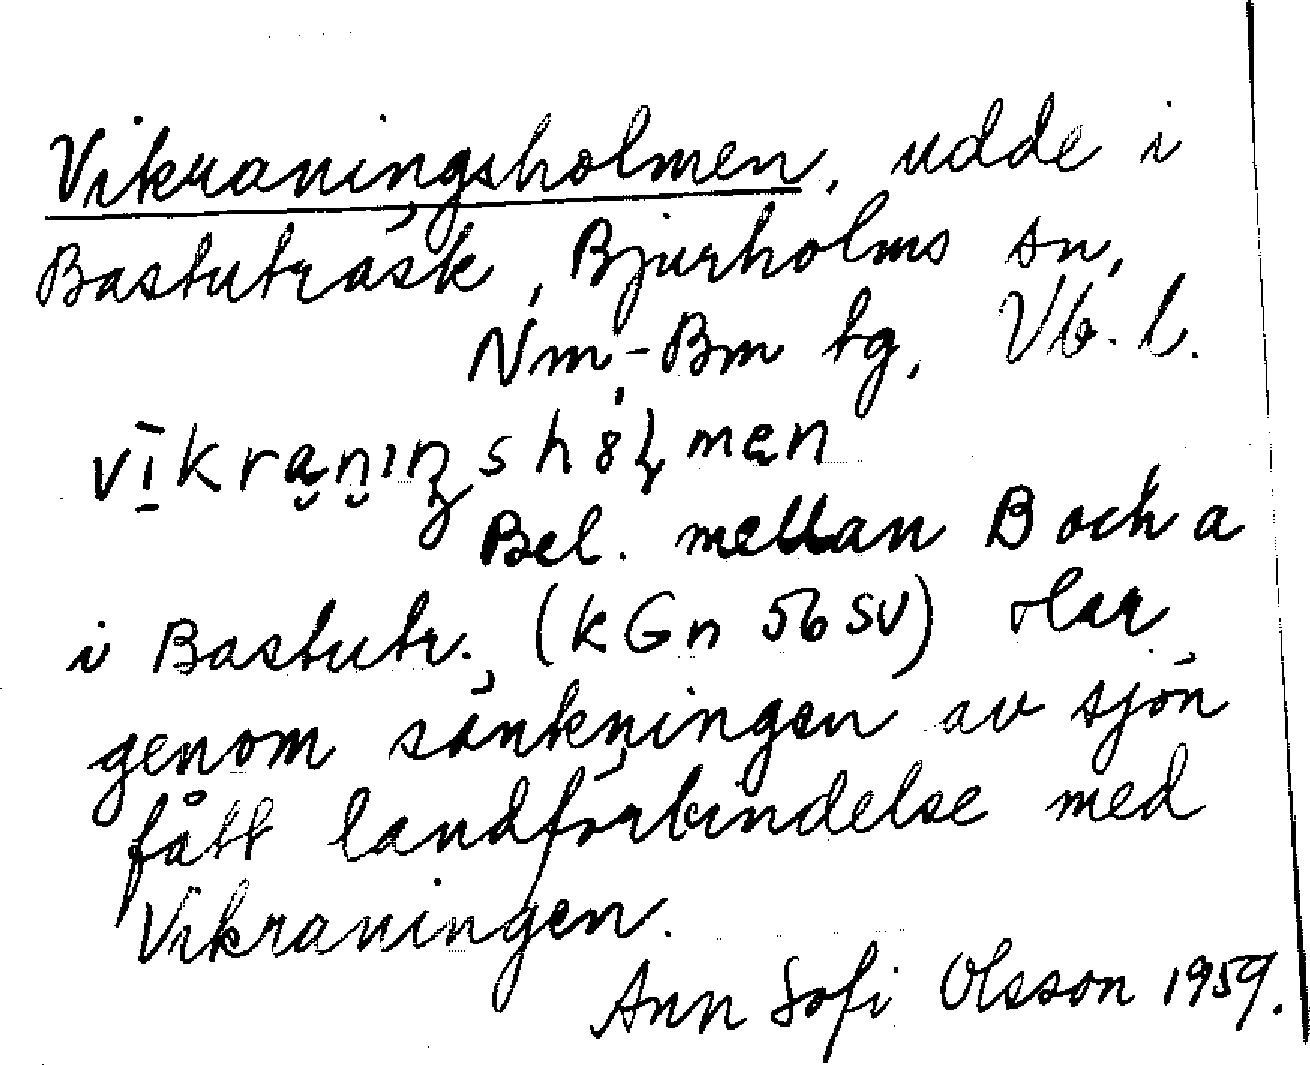 Vikraningsholmen, udde i
Bastuträsk, Bjurholms sn,
Nm-Bm tg, Vb. l.
Bel. mellan B och a
i Bastutr. (kGn 56 SV) Har
genom sänkningen av sjön
fått landförbindelse med
Vikraningen.
Ann Sofi Olsson 1959.